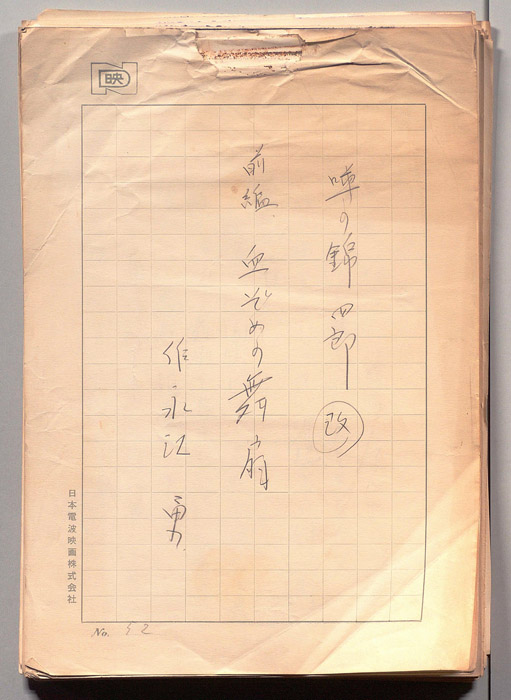 映
噂の錦四郎 改
前編 血ぞめの舞扇
永江 勇
日本電波映画株式会社
No.